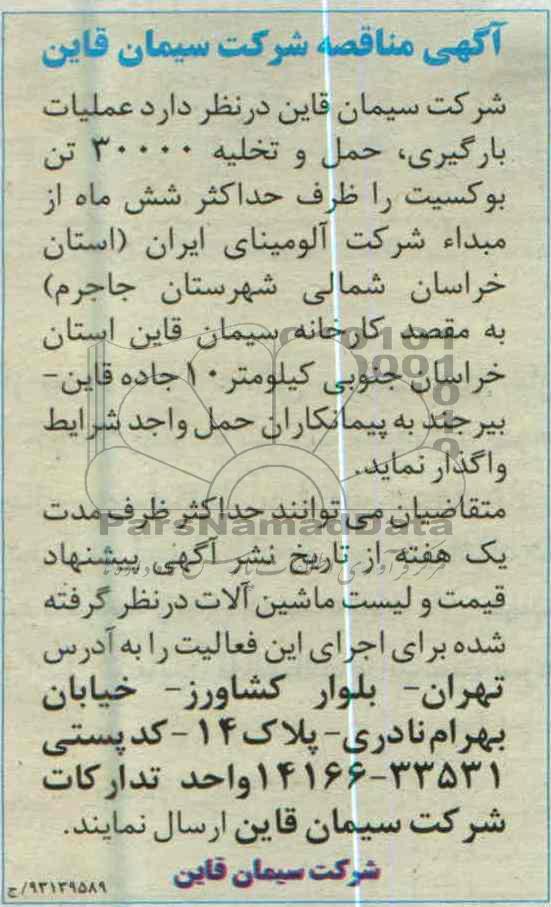 آگهی مناقصه شرکت سیمان قاین
شرکت سیمان قاین درنظر دارد عملیات
بارگیری، حمل و تخلیه ۳۰۰۰۰ تن
بوکسیت را ظرف حداکثر شش ماه از
مبداء شرکت آلومینای ایران (استان
خراسان شمالی شهرستان جاجرم)
به مقصد کارخانه سیمان قاین استان
خراسان جنوبی کیلومتر ۱۰ جاده قاین-
بیرجند به پیمانکاران حمل واجد شرایط
واگذار نماید.
متقاضیان می توانند حداکثر ظرف مدت
ParsNamadData
یک هفته از تاریخ نشر آگهی پیشنهاد
قیمت و لیست ماشین آلات درنظر گرفته
شده برای اجرای این فعالیت را به آدرس
تهران- بلوار کشاورز- خیابان
بهرام نادری- پلاک ۱۴ -کدپستی
۱۴۱۶۶-۳۳۵۳۱ واحد تدارکات
شرکت سیمان قاین ارسال نمایند.
شرکت سیمان قاین
۹۳۱۳۹۵۸۹/ج